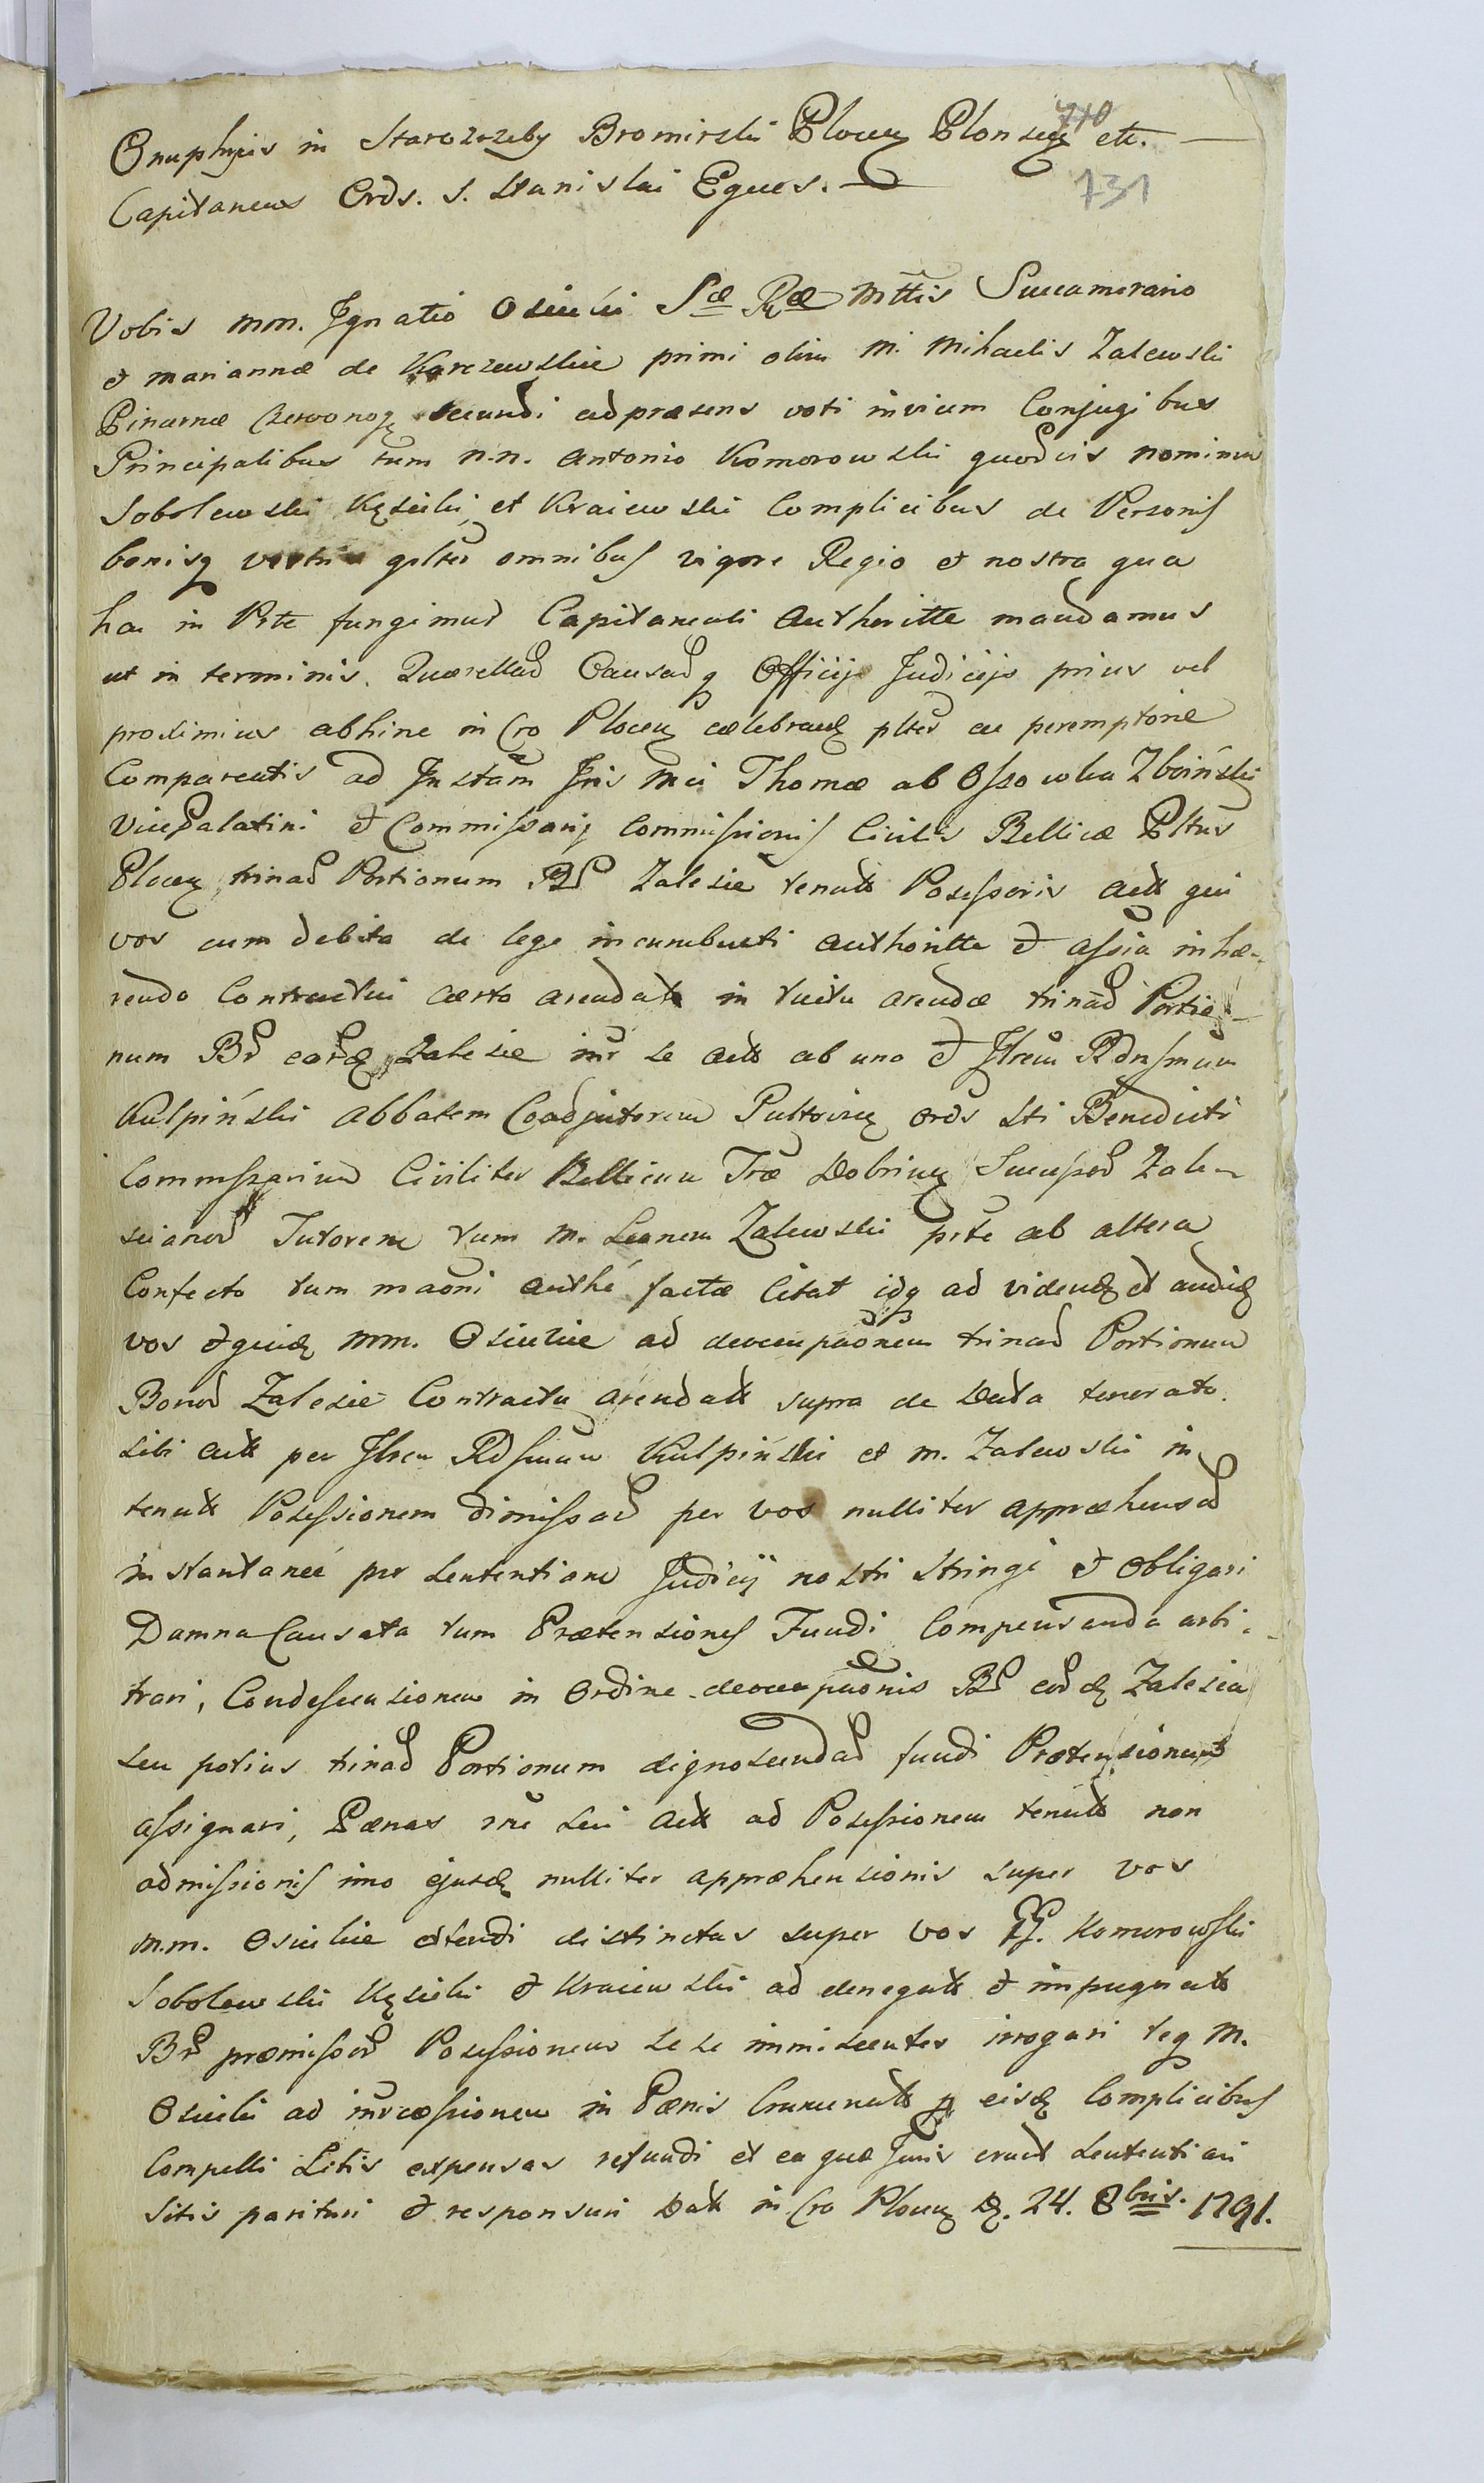 Onuphrius in Starozrzeby Bromirski Plocen Plonscen etc. —
710
Capitaneus Ords. S. Stanislai Eques. —
731
Vobis mm. Ignatio Osiecki Sæ Ræ Mttis Succamerario
et Mariannæ de Karczewskie primi olim M. Mihaelis Zalewski
Pincernæ Czerwonog secundi adpræsens voti invicem Conjugibus
Principalibus tum n.n. Antonio Komorowski quodvis nominin
Sobolewski Kęsicki et Kraiewski Complicibus de Personis
bonisq vestris gnlter omnibus vigore Regio et nostra qua
hac in Pte fungimur Capitaneali Authoritte mandamus
ut in terminis Quærellar Causarq Officij Judicijo prius vel
proximius abhinc in Cro Plocen celebrand plter ac peremptorie
Compareatis ad Instam Jris Mci Thomæ ab Ossowka Zboiński
Vicepalatini et Commissarij Commissionis Civilis Bellicæ Pltus
Plocen trinar Portionum Br Zalesie tenutt Possessoris Actt qui
vos cum debita de lege incumbenti authoritte et assia inhæ-
rendo Contractui certo arendatt in vuitu arendæ trinar Portio-
num Br eord Zalesie intr se Actt ab una et Illrem Rdnsmum
Kulpiński Abbatem Coadjutorem Pultovien Ords Sti Benedicti
Commissarium Civiliter Bellicum Træ Dobrinen Succesor Zale-
scianor Tutorem tum M. Leonem Zalewski prte ab altera
Confecto tum maoni authe factæ Citat idq ad videnđ et audienđ
vos equid mm. Osieckie ad deoccupaonem trinar Portionum
Bonor Zalesie Contractu arendatt supra de Data tenorato
sibi Actt per Illrem Rdsmum Kulpiński et M. Zalewski in
tenutt Possessionem dimissar per vos nulliter appræhensar
instantanee per sententiam Judicij nostri stringi et obligari
Damna Causata tum Prætensiones Fundi Compensanda arbi-
trari, Condescensionem in Ordine deoccupaonis Br eord Zalesia
seu potius trinar Portionum dignoscendar fundi Prætensionum
assignari, Pænas rne sui Actt ad Possessionem tenutt non
admissionis imo ejusd nulliter appræhensionis super vos
m.m. Osieckie extendi distinctas super vos GG. Komorowski
Sobolewski Kęsicki et Kraiewski ad denegatt et impugnatt
Br præmissor Possessionem sese immiscentes irrogari teq M.
Osiecki ad intercessionem in Pænis Communatt p eisd Complicibus
Compelli Litis expensas refundi et ea quæ Juris erunt sententiari
Sitis parituri et responsuri Datt in Cro Plocen D. 24. 8bris. 1791.